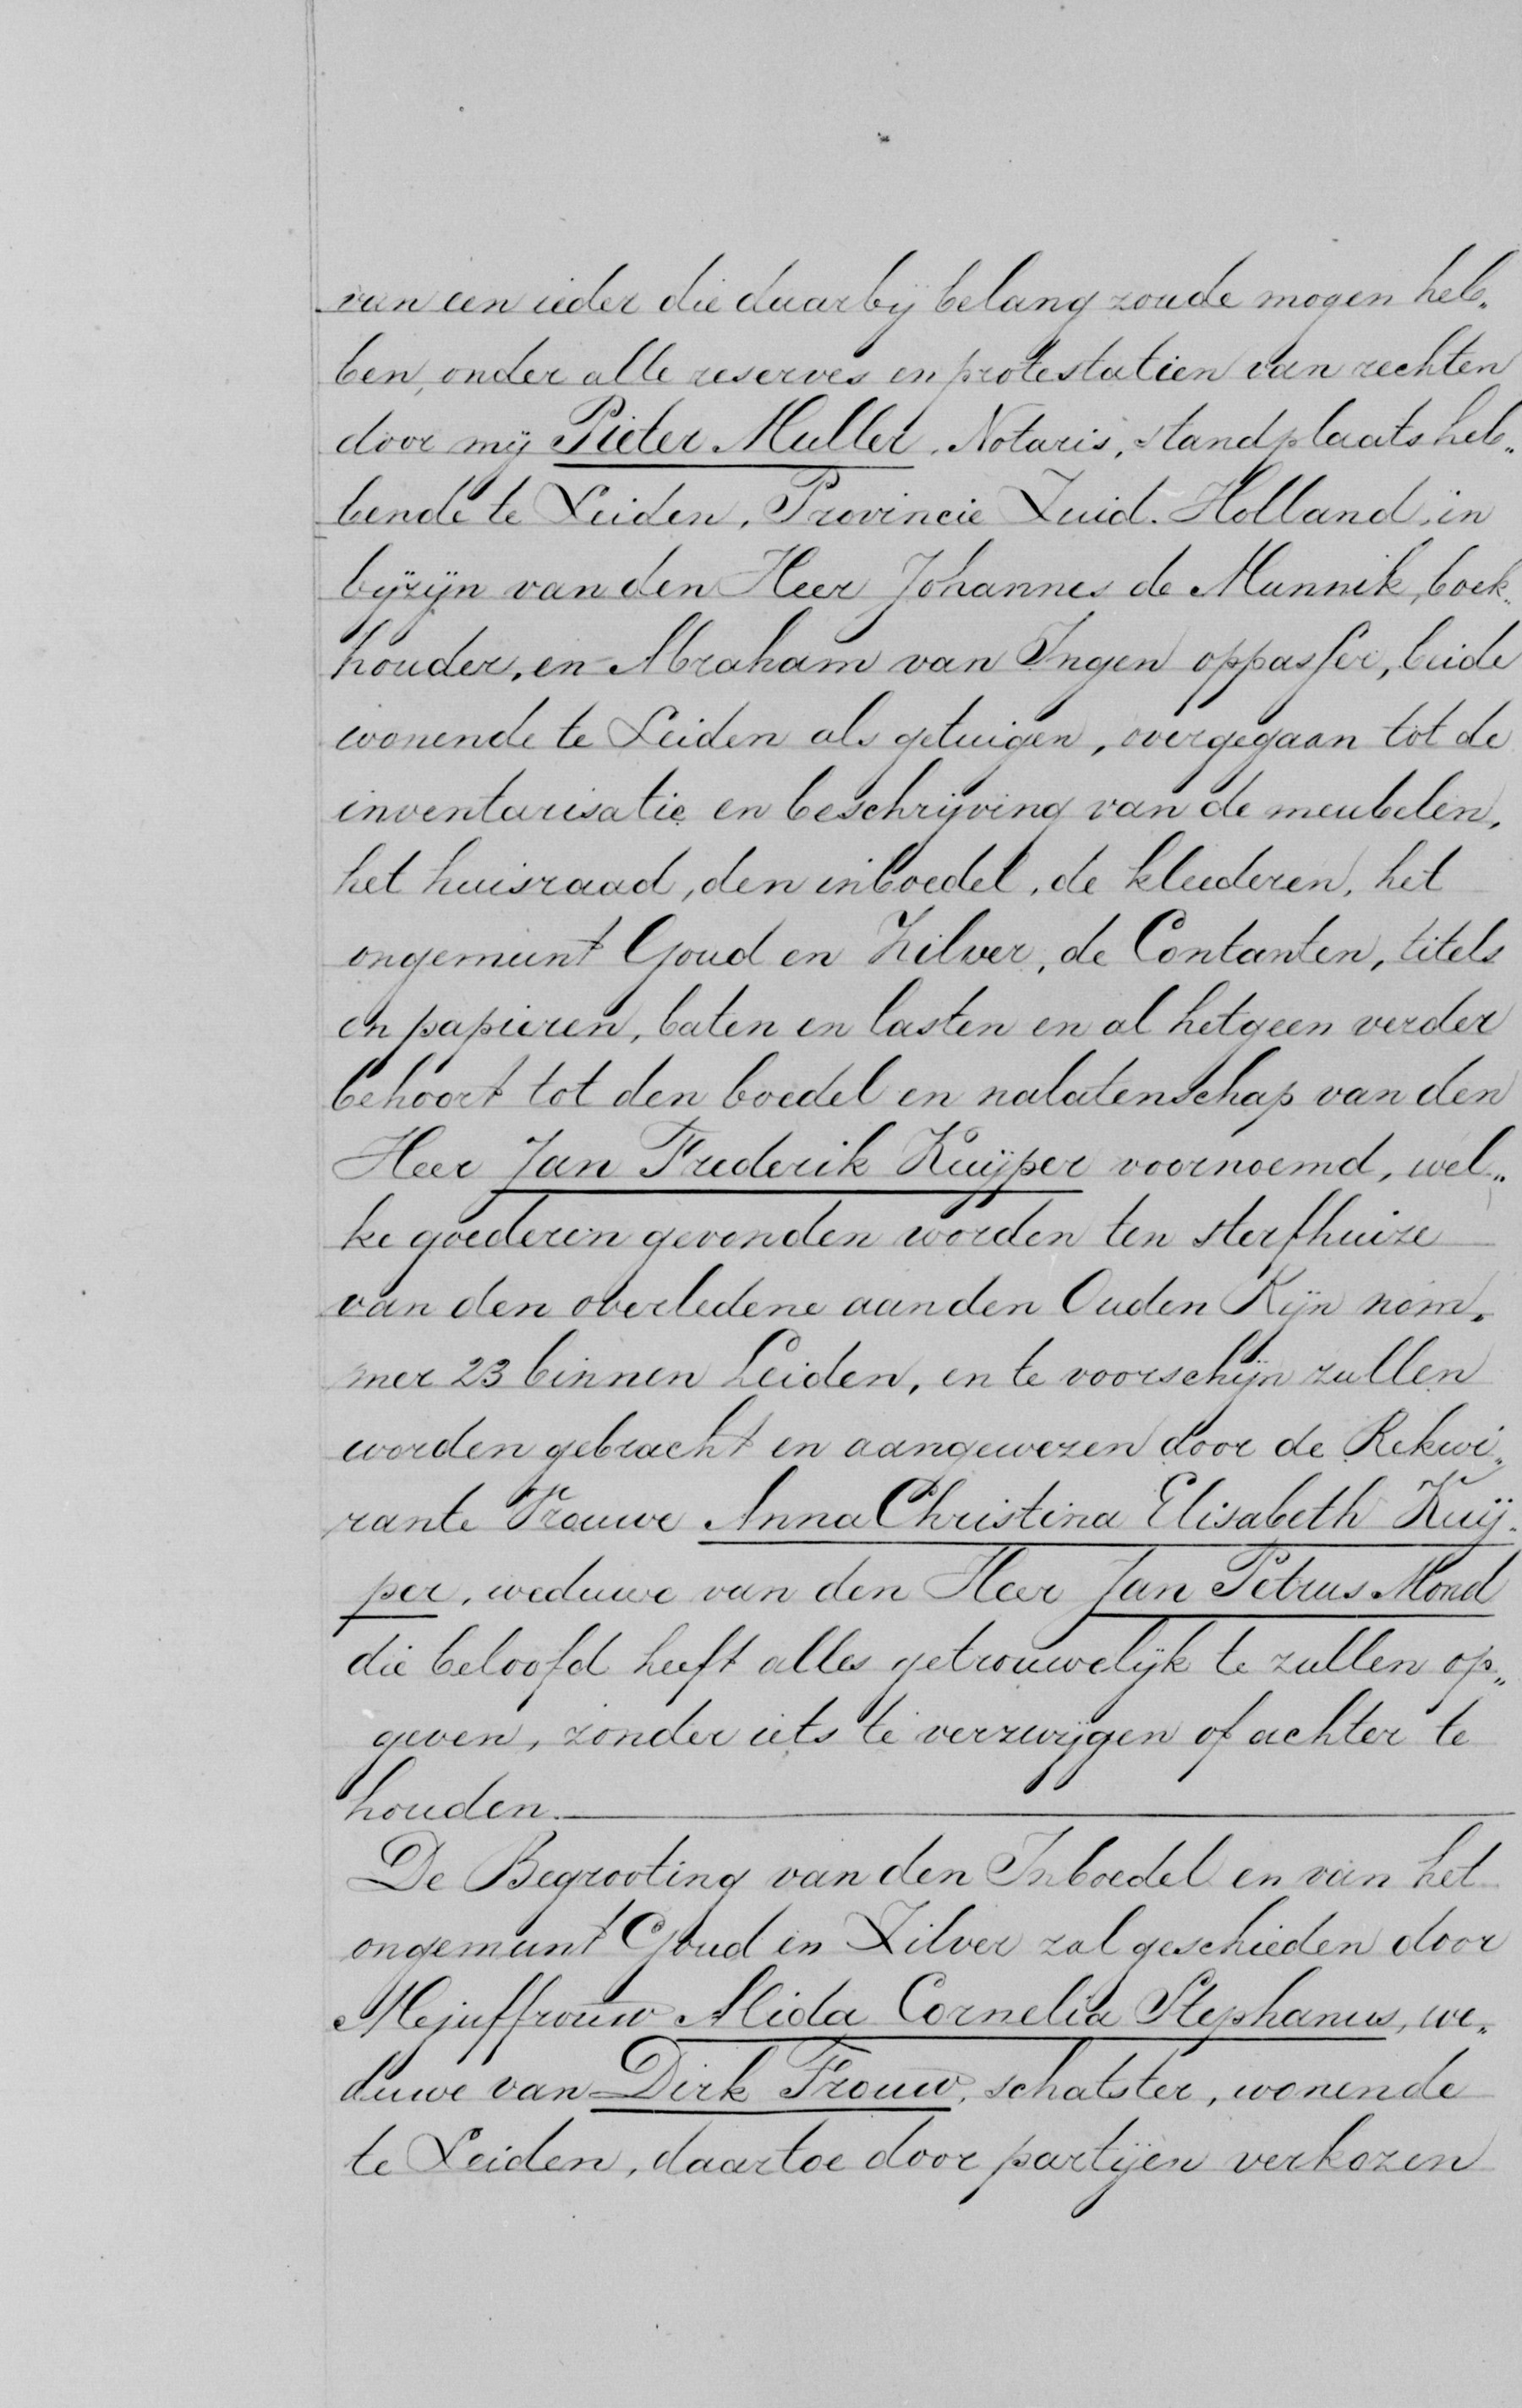 van een ieder die daarbij belang zoude mogen heb„
ben, onder alle reserves en protestatien van rechten
door mij Pieter Muller, Notaris, standplaats heb„
bende te Leiden, Provincie Zuid-Holland, in
bijzijn van den Heer Johannes de Munnik, boek„
houder, en Abraham van Ingen oppasser, beide
wonende te Leiden als getuigen, overgegaan tot de
inventarisatie en beschrijving van de meubelen,
het huisraad, den inboedel, de kleederen, het
ongemunt Goud en Zilver, de Contanten, titels
en papieren, baten en lasten en al hetgeen verder
behoort tot den boedel en nalatenschap van den
Heer Jan Frederik Kuijper voornoemd, wel„
ke goederen gevonden worden ten sterfhuize
van den overledene aan den Ouden Rijn nom„
mer 23 binnen Leiden, en te voorschijn zullen
worden gebracht en aangewezen door de Rekwi„
rante Vrouwe Anna Christina Elisabeth Kuij-
per, weduwe van den Heer Jan Petrus Mond
die beloofd heeft alles getrouwelijk te zullen op„
geven, zonder iets te verzwijgen of achter te
houden.
De Begrooting van den Inboedel en van het
ongemunt Goud en Zilver zal geschieden door
Mejuffrouw Alida Cornelia Stephanus, we„
duwe van Dirk Frouw, schatster, wonende
te Leiden, daartoe door partijen verkozen